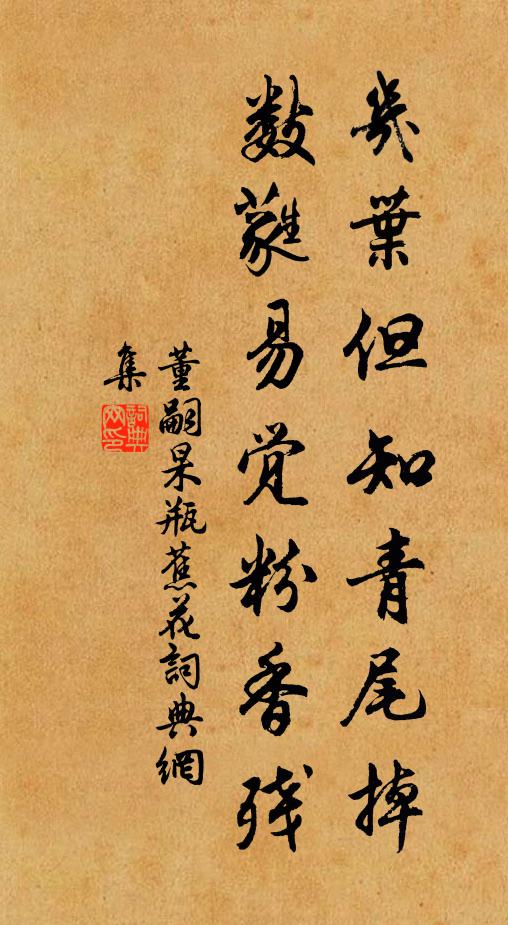 幾葉但知青尾掉
數蕤易覺粉香殘
董嗣杲瓶蕉花詞典網
集
詞典網印